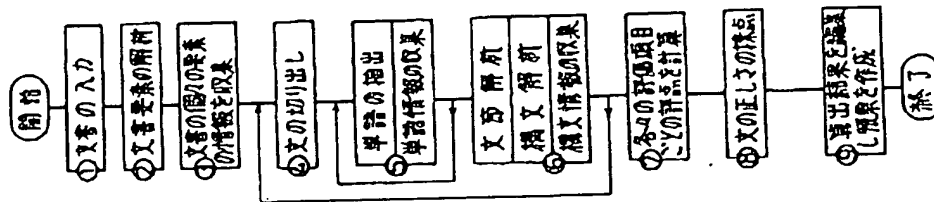 開始
①文書の入力
②文書要素の解析
③文書の個々の要素
の情報を収集
④文の切り出し
単語の抽出
⑤単語情報の収集
文節解析
構文解析
⑥構文情報の収集
⑦各々の評価項目
ごとの評点を計算
⑧文の正しさの評点
⑨算出結果を編集
し結果を作成
終了